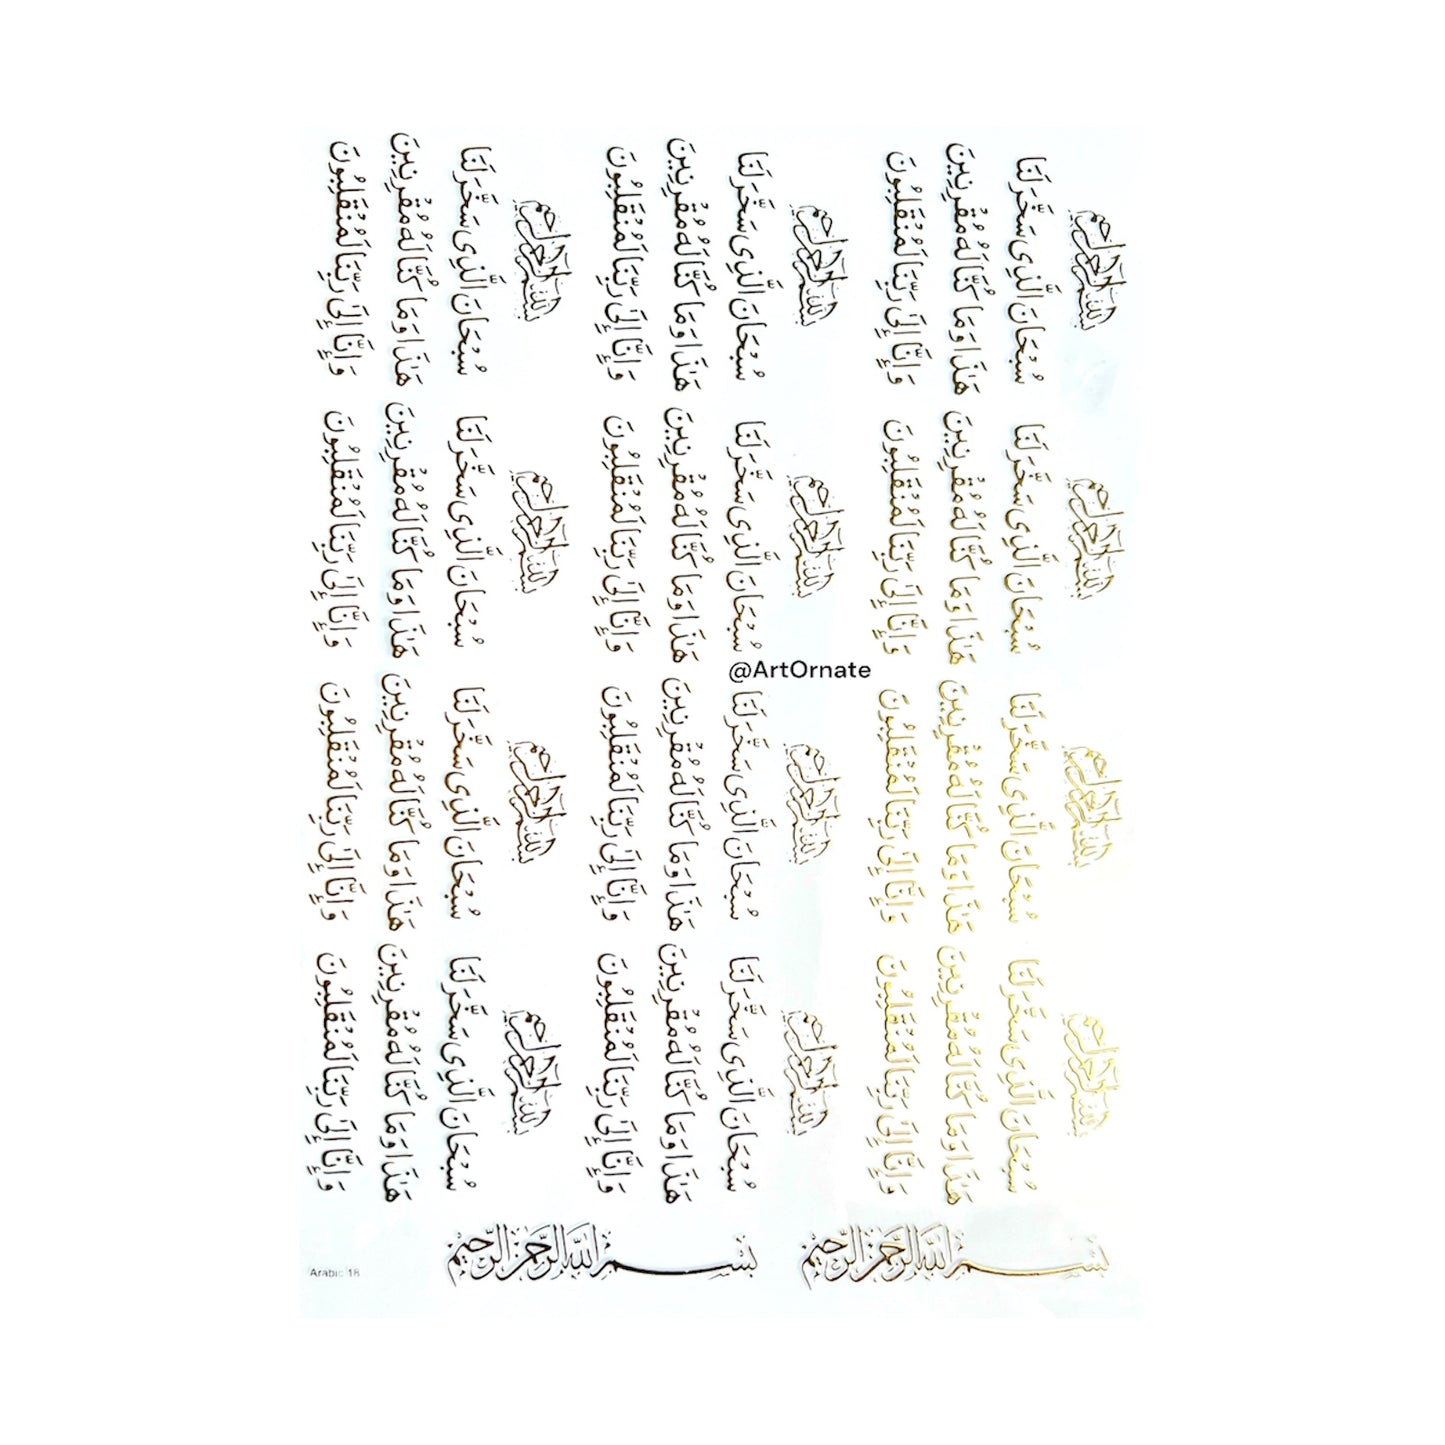 بسم الله الرحمن الرحيم
سُبْحَانَ الَّذِى سَخَّرَ لَنَا
هَٰذَا وَمَا كُنَّا لَهُ مُقْرِنِينَ
وَإِنَّا إِلَىٰ رَبِّنَا لَمُنْقَلِبُونَ
بسم الله الرحمن الرحيم
سُبْحَانَ الَّذِى سَخَّرَ لَنَا
هَٰذَا وَمَا كُنَّا لَهُ مُقْرِنِينَ
وَإِنَّا إِلَىٰ رَبِّنَا لَمُنْقَلِبُونَ
بسم الله الرحمن الرحيم
سُبْحَانَ الَّذِى سَخَّرَ لَنَا
هَٰذَا وَمَا كُنَّا لَهُ مُقْرِنِينَ
وَإِنَّا إِلَىٰ رَبِّنَا لَمُنْقَلِبُونَ
بسم الله الرحمن الرحيم
سُبْحَانَ الَّذِى سَخَّرَ لَنَا
هَٰذَا وَمَا كُنَّا لَهُ مُقْرِنِينَ
وَإِنَّا إِلَىٰ رَبِّنَا لَمُنْقَلِبُونَ
بسم الله الرحمن الرحيم
سُبْحَانَ الَّذِى سَخَّرَ لَنَا
هَٰذَا وَمَا كُنَّا لَهُ مُقْرِنِينَ
وَإِنَّا إِلَىٰ رَبِّنَا لَمُنْقَلِبُونَ
بسم الله الرحمن الرحيم
سُبْحَانَ الَّذِى سَخَّرَ لَنَا
هَٰذَا وَمَا كُنَّا لَهُ مُقْرِنِينَ
وَإِنَّا إِلَىٰ رَبِّنَا لَمُنْقَلِبُونَ
@ArtOrnate
بسم الله الرحمن الرحيم
سُبْحَانَ الَّذِى سَخَّرَ لَنَا
هَٰذَا وَمَا كُنَّا لَهُ مُقْرِنِينَ
وَإِنَّا إِلَىٰ رَبِّنَا لَمُنْقَلِبُونَ
بسم الله الرحمن الرحيم
سُبْحَانَ الَّذِى سَخَّرَ لَنَا
هَٰذَا وَمَا كُنَّا لَهُ مُقْرِنِينَ
وَإِنَّا إِلَىٰ رَبِّنَا لَمُنْقَلِبُونَ
بسم الله الرحمن الرحيم
سُبْحَانَ الَّذِى سَخَّرَ لَنَا
هَٰذَا وَمَا كُنَّا لَهُ مُقْرِنِينَ
وَإِنَّا إِلَىٰ رَبِّنَا لَمُنْقَلِبُونَ
بسم الله الرحمن الرحيم
سُبْحَانَ الَّذِى سَخَّرَ لَنَا
هَٰذَا وَمَا كُنَّا لَهُ مُقْرِنِينَ
وَإِنَّا إِلَىٰ رَبِّنَا لَمُنْقَلِبُونَ
بسم الله الرحمن الرحيم
سُبْحَانَ الَّذِى سَخَّرَ لَنَا
هَٰذَا وَمَا كُنَّا لَهُ مُقْرِنِينَ
وَإِنَّا إِلَىٰ رَبِّنَا لَمُنْقَلِبُونَ
بسم الله الرحمن الرحيم
سُبْحَانَ الَّذِى سَخَّرَ لَنَا
هَٰذَا وَمَا كُنَّا لَهُ مُقْرِنِينَ
وَإِنَّا إِلَىٰ رَبِّنَا لَمُنْقَلِبُونَ
بِسْمِ اللَّهِ الرَّحْمَنِ الرَّحِيمِ
بِسْمِ اللَّهِ الرَّحْمَنِ الرَّحِيمِ
Arabic 18